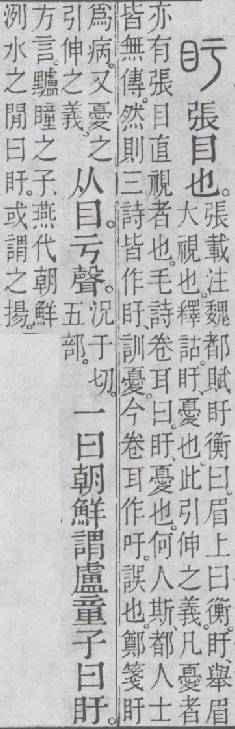 盱 張目也。
張載注魏都賦盱衡曰。眉上曰衡。盱、舉眉
大視也。釋詁盱、憂也。此引伸之義。凡憂者
亦有張目直視者也。毛詩卷耳曰。盱、憂也。何人斯、都人士
皆無傳。然則三詩皆作盱、訓憂。今卷耳作吁。誤也。鄭箋盱
爲病。又憂之
引伸之義。
从目。亐聲。
況于切。
五部。
一曰朝鮮謂盧童子曰盱。
方言。驢瞳之子、燕代朝鮮
洌水之閒曰盱。或謂之揚。